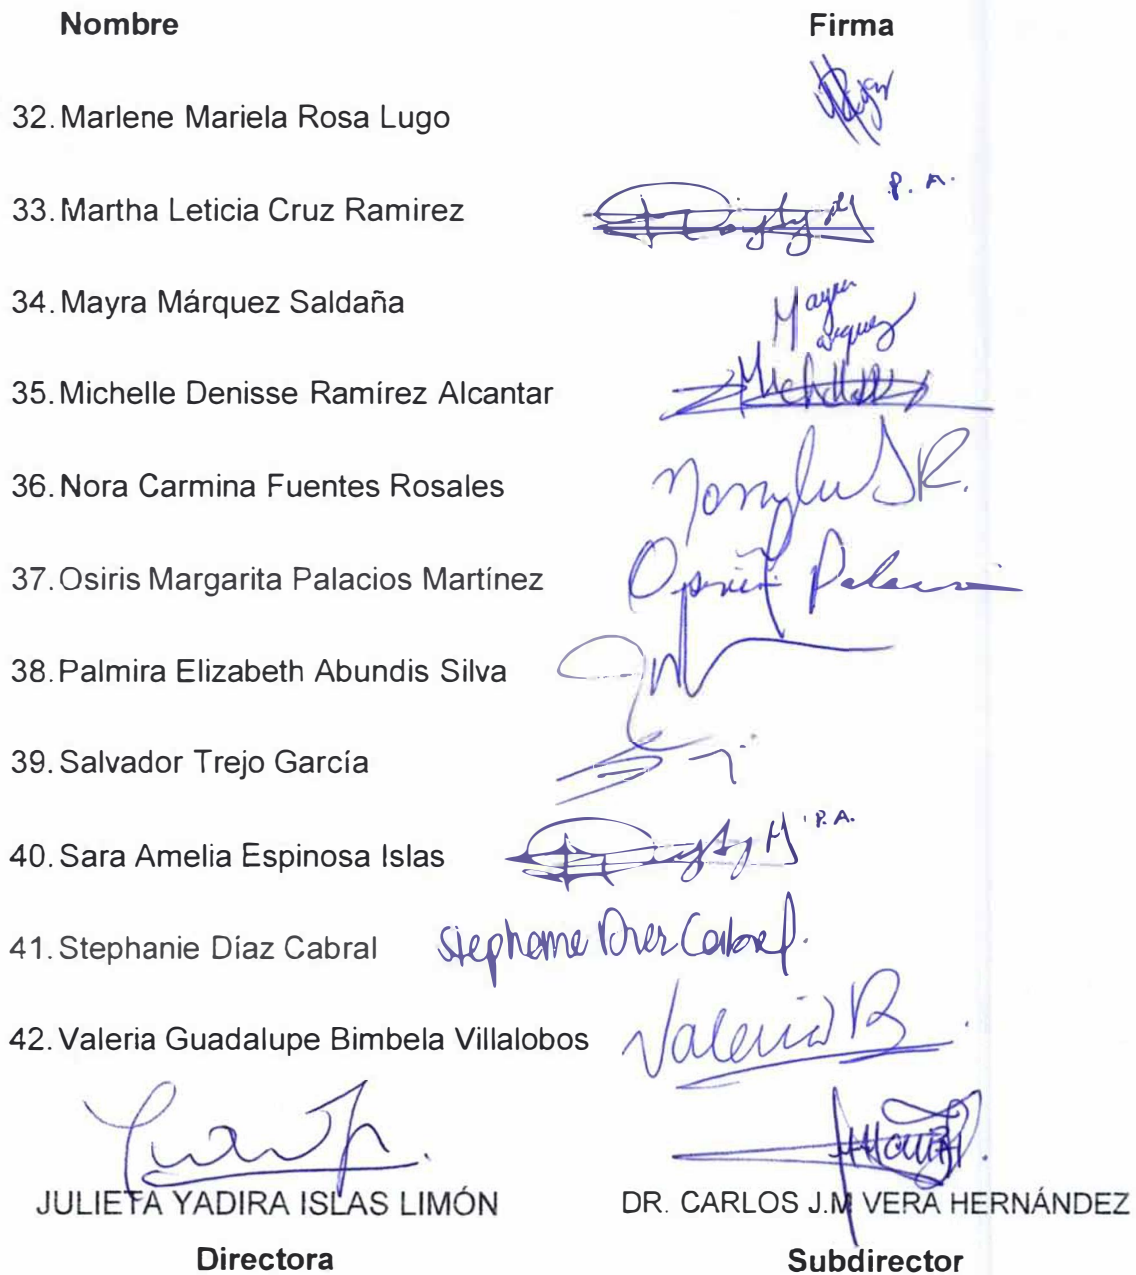 Nombre Firma
32. Marlene Mariela Rosa Lugo
33. Martha Leticia Cruz Ramirez P. A.
34. Mayra Márquez Saldaña Mayra
arquez
35. Michelle Denisse Ramírez Alcantar
36. Nora Carmina Fuentes Rosales
37. Osiris Margarita Palacios Martínez
38. Palmira Elizabeth Abundis Silva
39. Salvador Trejo García
40. Sara Amelia Espinosa Islas P.A.
41. Stephanie Díaz Cabral
42. Valeria Guadalupe Bimbela Villalobos Valeria B
JULIETA YADIRA ISLAS LIMÓN DR. CARLOS J.M VERA HERNÁNDEZ
Directora Subdirector